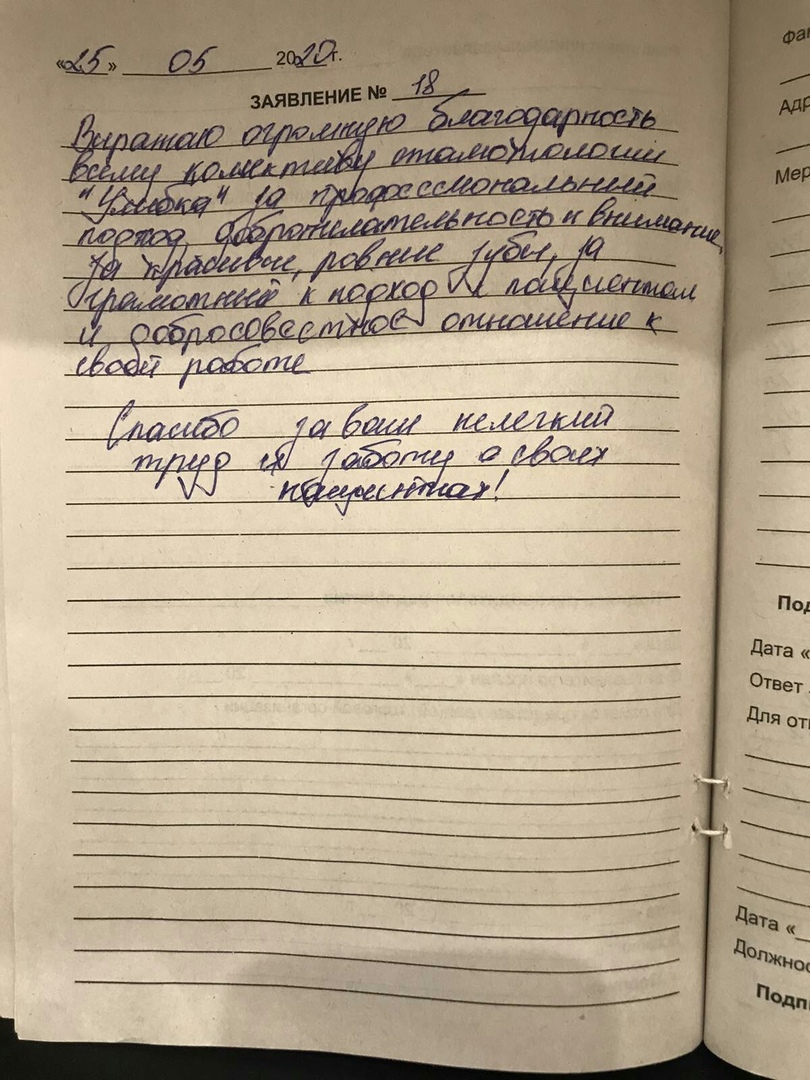 «25» 05 2020г.
ЗАЯВЛЕНИЕ № 18
Выражаю огромную благодарность
всему колективу стоматологии
"Улыбка" за профессиональный
подход, доброжелательность и внимание,
за красивые, ровные зубы, за
грамотный к подход к пациентам
и добросовестное отношение к
своей работе
Спасибо за ваш нелегкий
труд и заботу о своих
пациентах!
Фам
Адр
Мер
Под
Дата «
Ответ
Для отм
Дата «
Должнос
Подпи